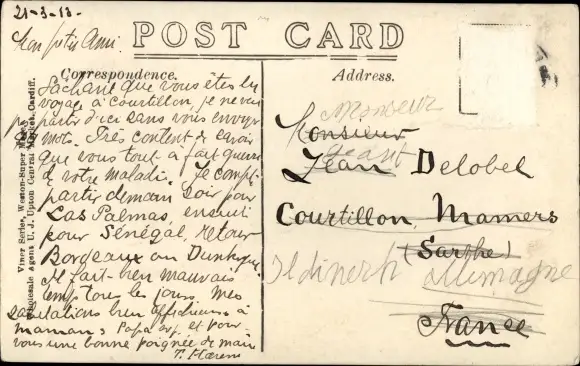 21-3-13-
Mon petit Ami.
POST CARD
Correspondence.
Sachant que vous êtes en
voyage à Courtillon, je ne veux
partir d'ici sans vous envoyer
mots. Très content de savoir
que vous tout à fait guéri
de votre maladie. Je compte
partir demain soir pour
Las Palmas, ensuite
pour Sénégal, retour
Bordeaux ou Dunkerque
Il fait bien mauvais
temps tous les jours. Mes
salutations bien affectueuses à
maman, Papa et pour
vous une bonne poignée de main
Viner Series, Weston-Super-Mare.
Wholesale Agent U. J. Upton Central Market, Cardiff.
Address.
Monsieur
Monsieur
Jean Delobel
Courtillon, Mamers
(Sarthe)
Allemagne
France